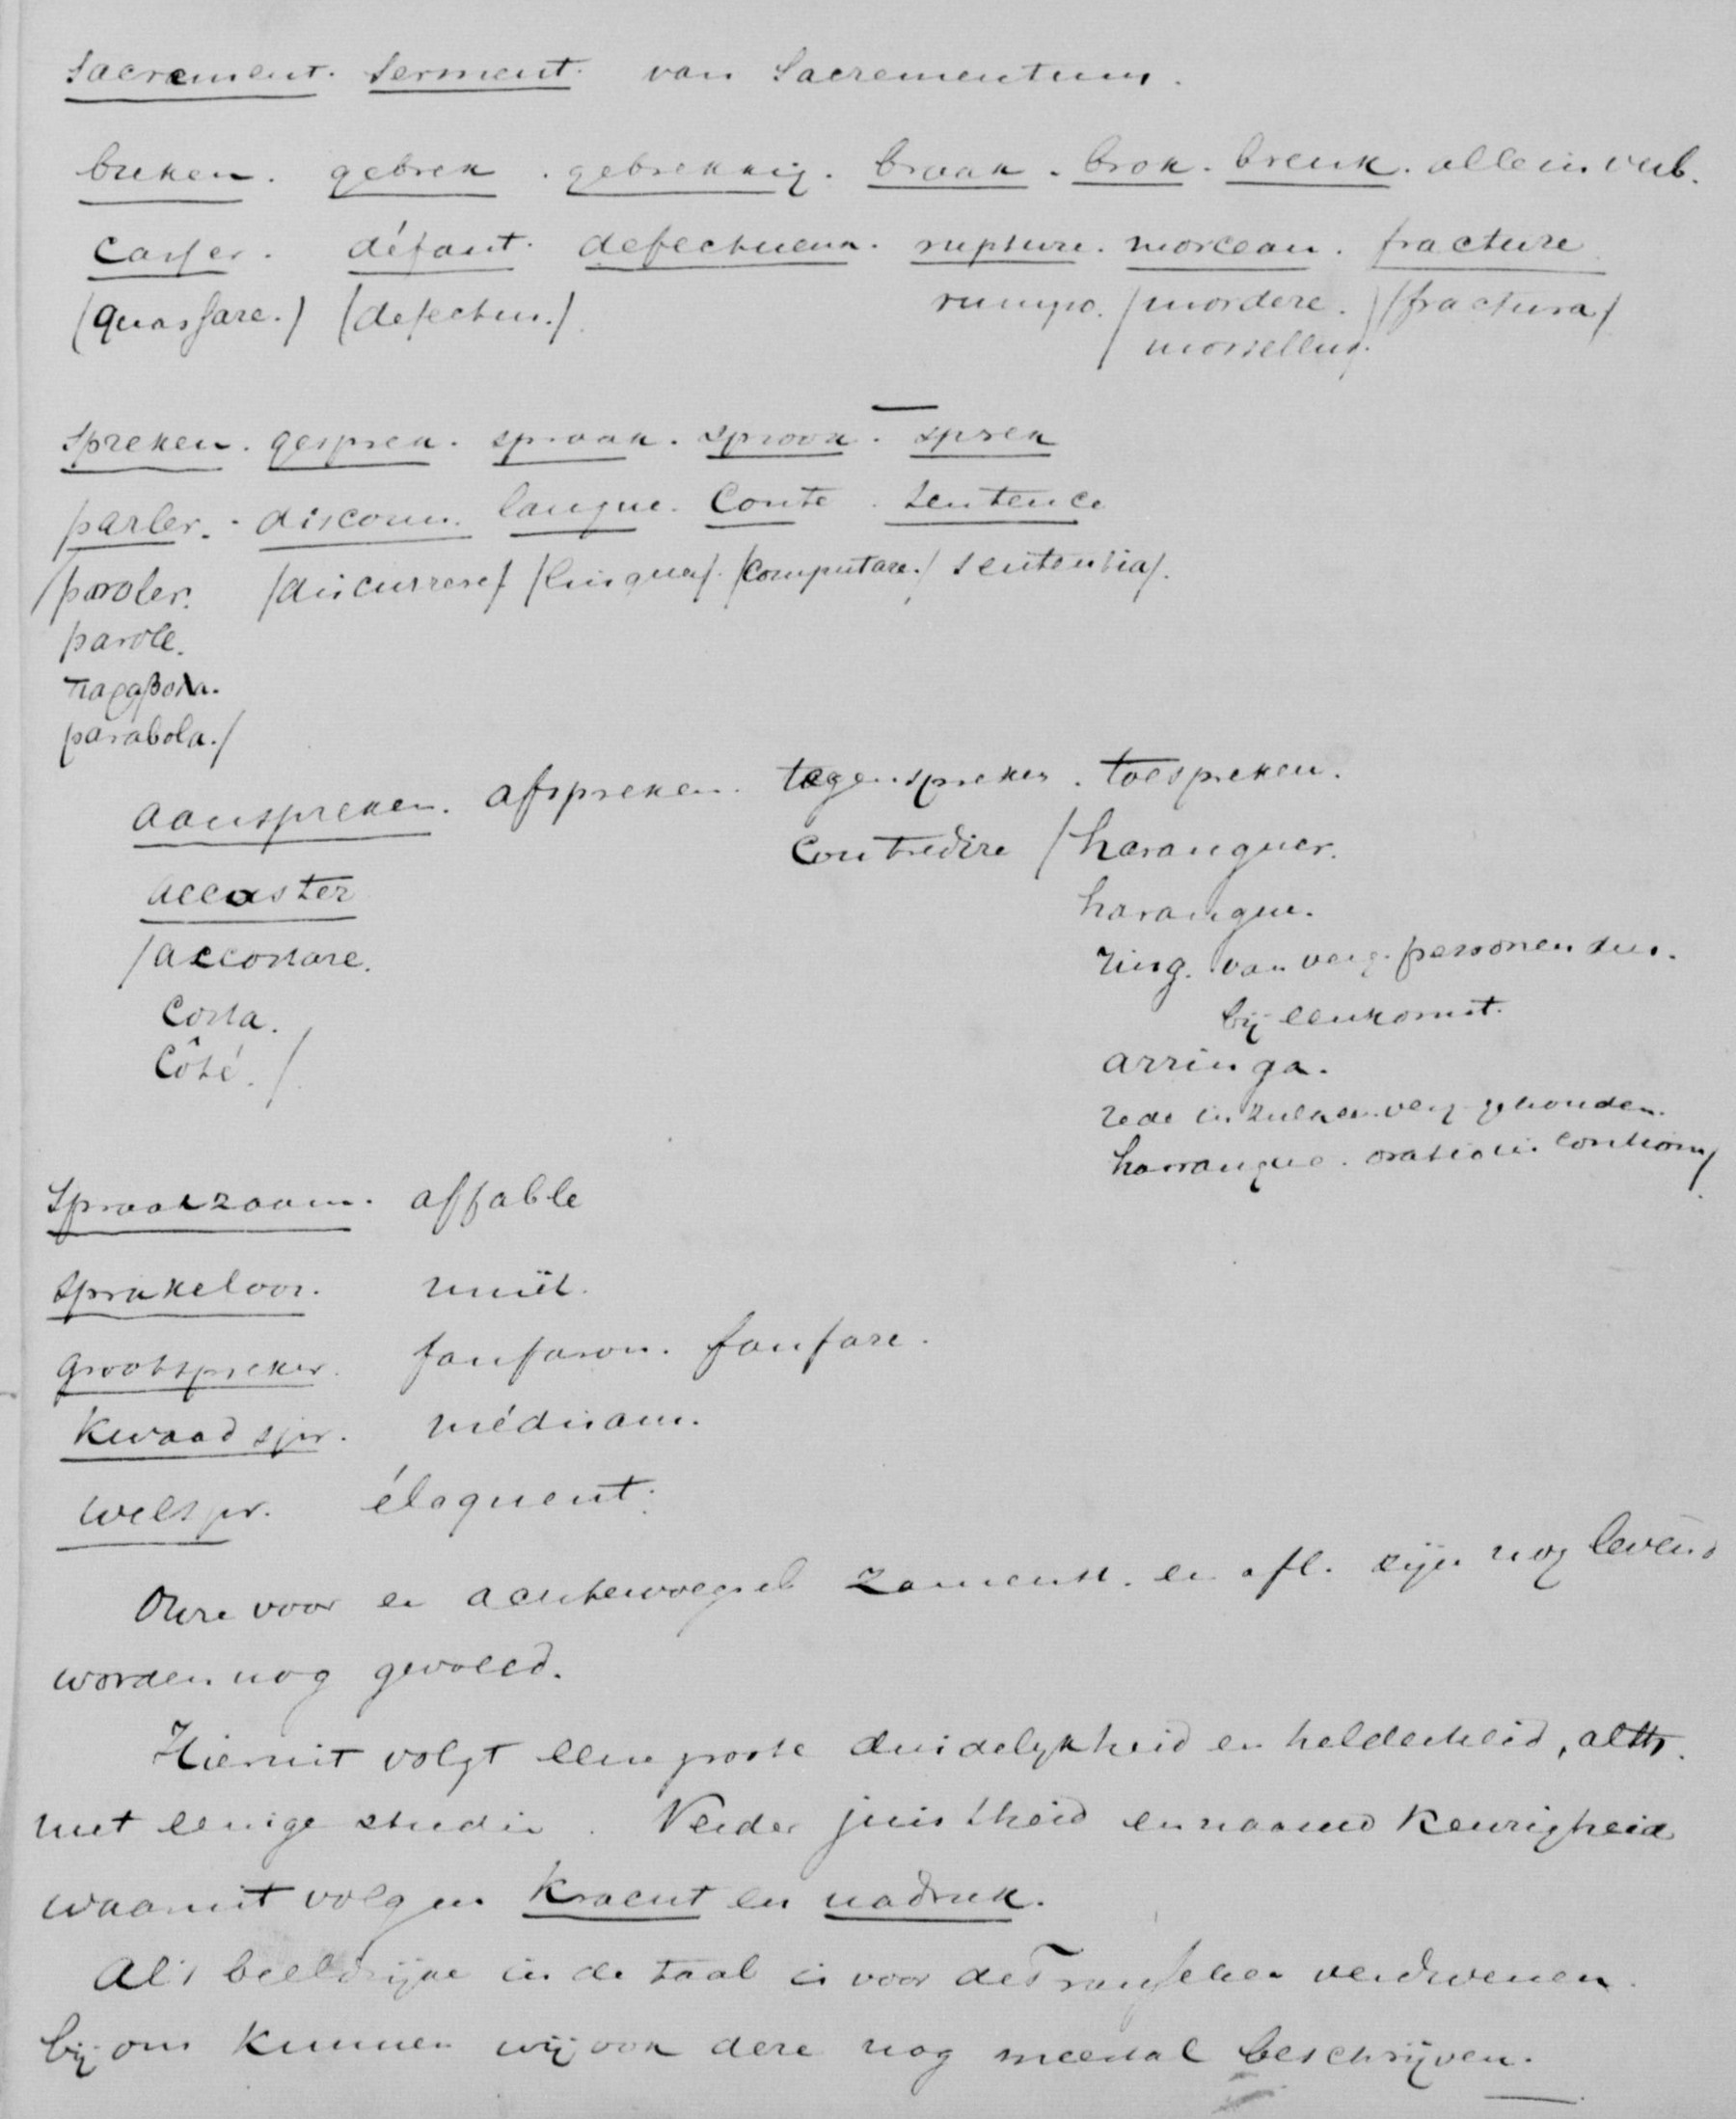 Sacrement. Serment. van Sacrementum.
breken. gebrek. gebrekkig. braak. brok. breuk. alle in verb.
Casser. défaut. defectueux. rupture. morceau. fracture
(quassare.) (defectus.) rumpo. (mordere.) (fractura)
morsellus.
Spreken. gesprek. spraak. sprook. sprek
parler. discours. langue. Conte. Sentence
(paroler. (discurrere) (lingua). (Computare.) Sententia).
parole.
παραβολα.
parabola.)
aanspreken. afspreken. tegenspreken. toespreken.
Contredire (haranguer.
accoster
harangue.
(accostare.
ring. van verg. personen
Costa.
bijeenkomst.
Côté.)
arringa.
rede in zulken verg. gehouden.
harrangue. oratio in contione)
Spraakzaam. affable
sprakeloos. muët.
grootspreker. fanfaron. fanfare.
Kwaadspr. médisans.
Welspr. éloquent.
Onze voor en achtervoegsels zamenst. en afl. zijn nog levend
worden nog gevoeld.
Hieruit volgt eene groote duidelykheid en helderheid, alth.
met eenige studie. Verder juistheid en naauwkeurigheid
waaruit volgen Kracht en nadruk.
Al't beeldrijke in de taal is voor de Franschen verdwenen.
bij ons kunnen wij ook deze nog meestal beschrijven.